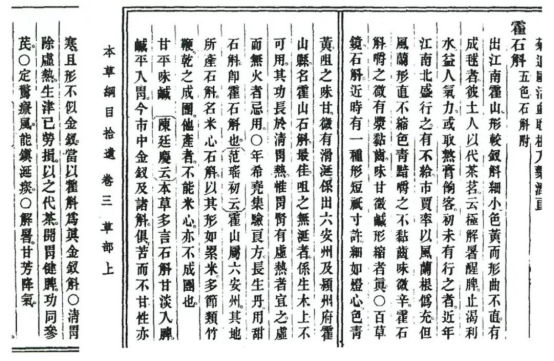 霍石斛 五色石斛附
出江南霍山形較釵斛細小色黃而形曲不直有
成毬者彼土人以代茶茗云極解暑醒脾止渴利
水益人氣力或取熬膏餉客初未有行之者近年
江南北盛行之有不給市賈率以風蘭根僞充但
風蘭形直不縮色青黯嚼之不黏齒味微辛霍石
斛嚼之微有漿黏齒味甘微鹹形縮者眞○百草
鏡石斛近時有一種形短祇寸許細如燈心色青
黃咀之味甘微有滑涎係出六安州及潁州府霍
山縣名霍山石斛最佳咀之無涎者係生木上不
可用其功長於清胃熱惟胃腎有虛熱者宜之虛
而無火者忌用○年希堯集驗良方長生丹用甜
石斛卽霍石斛也范瑤初云霍山屬六安州其地
所產石斛名米心石斛以其形如累米多節類竹
鞭乾之成團他產者不能米心亦不成團也
甘平味鹹 陳廷慶云本草多言石斛甘淡入脾
鹹平入胃今市中金釵及諸斛俱苦而不甘性亦
本草綱目拾遺 卷三 草部上
寒且形不似金釵當以霍斛爲眞金釵斛○清胃
除虛熱生津已勞損以之代茶開胃健脾功同參
芪○定驚療風能鎮涎痰○解暑甘芳降氣